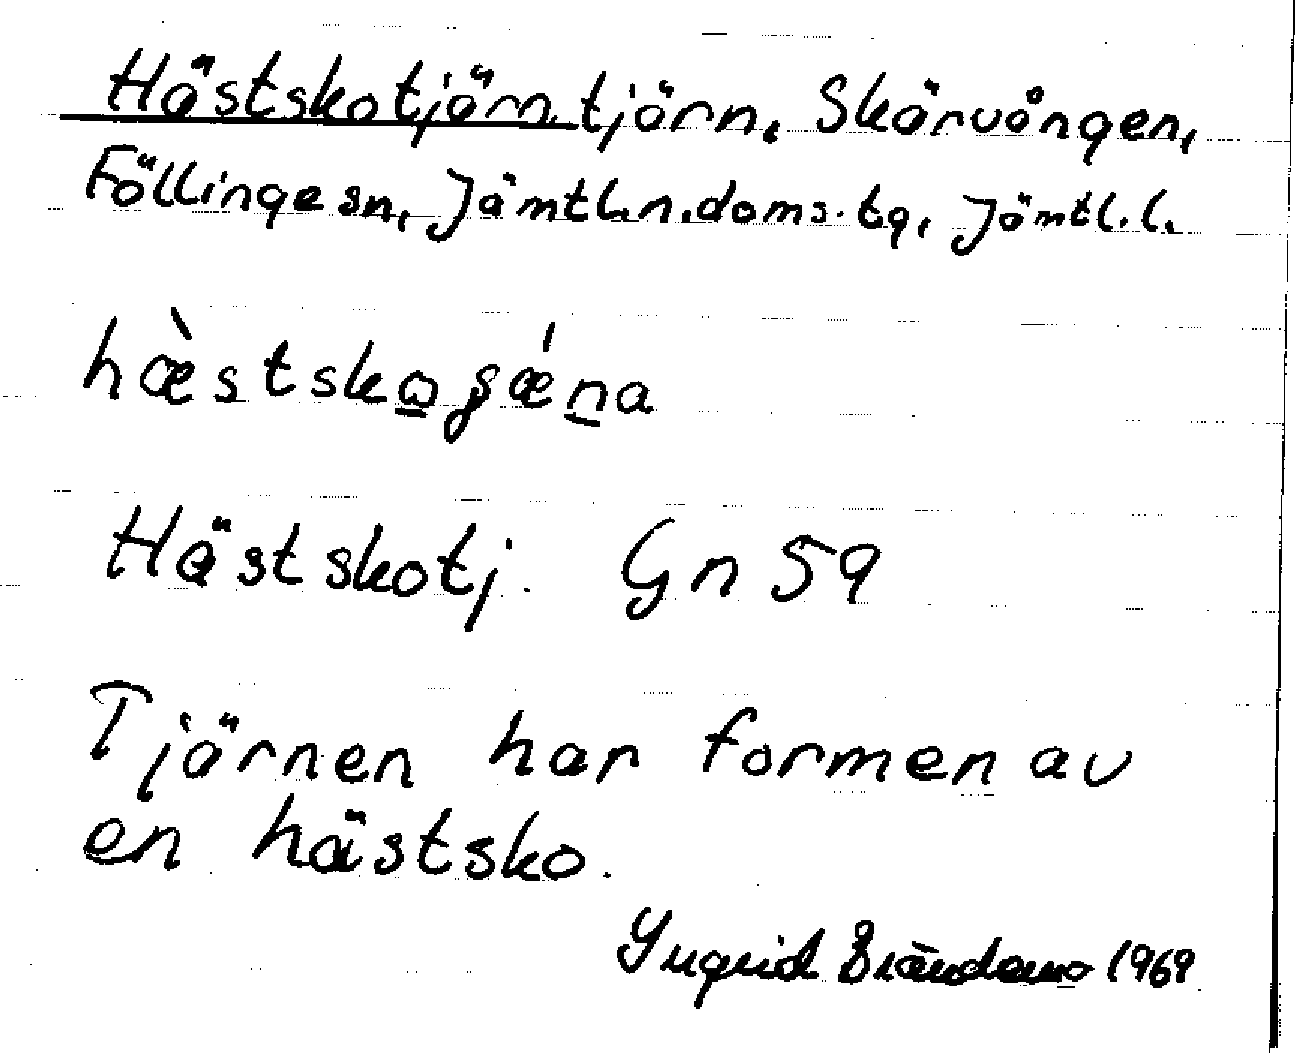 Hästskotjärn, tjärn, Skärvången,
Föllinge sn, Jämtl. n. doms. tg, Jämtl. l.
hæ̀stskɷʂǽṉa
Hästskotj. Gn 59
Tjärnen har formen av
en hästsko.
Ingrid 1969